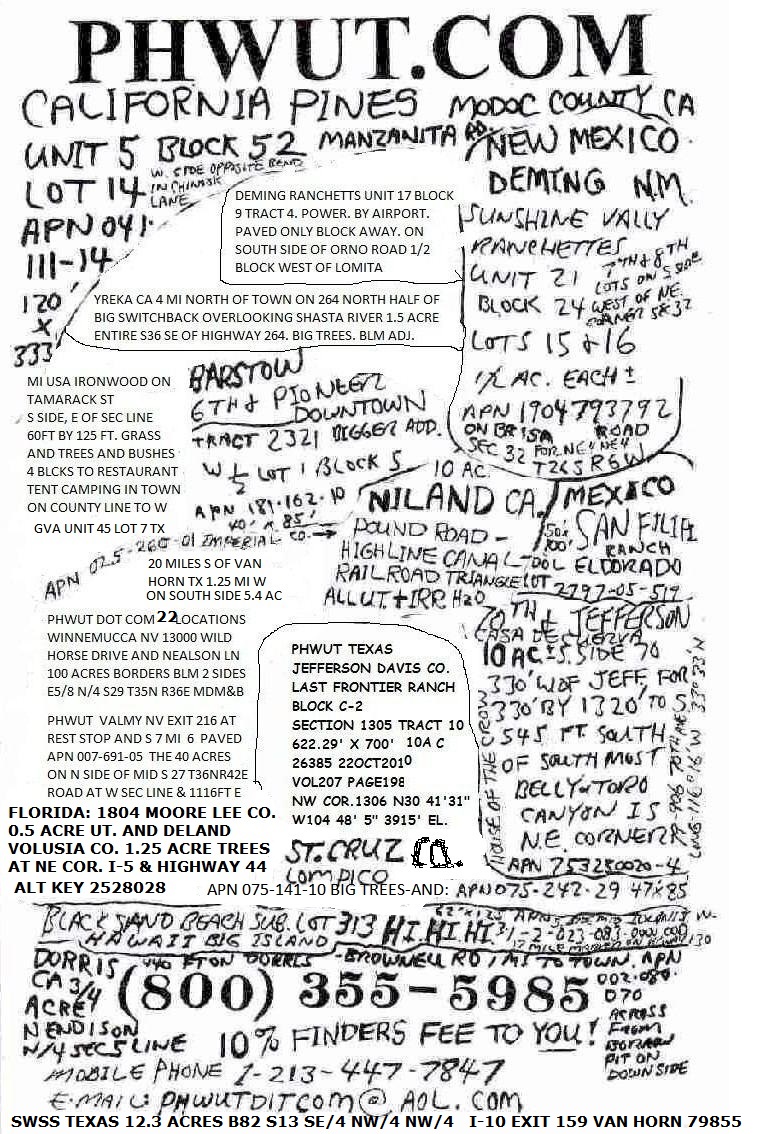 PHWUT.COM
CALIFORNIA PINES MODOC COUNTY CA
UNIT 5 BLOCK 52 MANZANITA RD
LOT 14 W. SIDE OPPOSITE BEND
IN CHINOOK
LANE
APN 041-
111-14
120'
X
333'
DEMING RANCHETTS UNIT 17 BLOCK
9 TRACT 4. POWER. BY AIRPORT.
PAVED ONLY BLOCK AWAY. ON
SOUTH SIDE OF ORNO ROAD 1/2
BLOCK WEST OF LOMITA
NEW MEXICO
DEMING N.M.
SUNSHINE VALLY
RANCHETTES
UNIT 21
BLOCK 24
7TH & 8TH
LOTS ON S SIDE
WEST OF NE
CORNER S32
LOTS 15 & 16
1/2 AC. EACH ±
APN 1904793792
ON BRISA ROAD
SEC 32 FOR NE4 NE4
T26S R6W
YREKA CA 4 MI NORTH OF TOWN ON 264 NORTH HALF OF
BIG SWITCHBACK OVERLOOKING SHASTA RIVER 1.5 ACRE
ENTIRE S36 SE OF HIGHWAY 264. BIG TREES. BLM ADJ.
MI USA IRONWOOD ON
TAMARACK ST
S SIDE, E OF SEC LINE
60FT BY 125 FT. GRASS
AND TREES AND BUSHES
4 BLCKS TO RESTAURANT
TENT CAMPING IN TOWN
ON COUNTY LINE TO W
GVA UNIT 45 LOT 7 TX
BARSTOW
6TH & PIONEER
DOWNTOWN
TRACT 2321 BIGGER ADD.
W 1/2 LOT 1 BLOCK 5
APN 181-162-10
40' X 85'
10 AC.
NILAND CA.
IMPERIAL CO.→
POUND ROAD -
HIGHLINE CANAL -
RAILROAD TRIANGLE
ALL UT + IRR H2O
APN 025-260-01
MEXICO
50X
100'
SAN FILIPI
RANCH
DOL ELDORADO
LOT 2797-05-519
20 MILES S OF VAN
HORN TX 1.25 MI W
ON SOUTH SIDE 5.4 AC
PHWUT DOT COM 22 LOCATIONS
WINNEMUCCA NV 13000 WILD
HORSE DRIVE AND NEALSON LN
100 ACRES BORDERS BLM 2 SIDES
E5/8 N/4 S29 T35N R36E MDM&B
PHWUT VALMY NV EXIT 216 AT
REST STOP AND S 7 MI 6 PAVED
APN 007-691-05 THE 40 ACRES
ON N SIDE OF MID S 27 T36NR42E
ROAD AT W SEC LINE & 1116FT E
PHWUT TEXAS
JEFFERSON DAVIS CO.
LAST FRONTIER RANCH
BLOCK C-2
SECTION 1305 TRACT 10
622.29' X 700' 10A C
26385 22OCT2010
VOL207 PAGE198
NW COR.1306 N30 41'31"
W104 48' 5" 3915' EL.
70TH & JEFFERSON
CASA DE CUERVA
10 AC ± S. SIDE 70
330' W OF JEFF. FOR
330' BY 1320' TO S.
545 FT. SOUTH
OF SOUTH MOST
BELLY OF TORO
CANYON IS
N.E. CORNER
APN 753250020-4
HOUSE OF THE CROW
FLORIDA: 1804 MOORE LEE CO.
0.5 ACRE UT. AND DELAND
VOLUSIA CO. 1.25 ACRE TREES
AT NE COR. I-5 & HIGHWAY 44
ALT KEY 2528028
ST. CRUZ CO.
LOMPICO
APN 075-141-10 BIG TREES-AND: APN 075-242-29 47X85
BLACK SAND BEACH SUB. LOT 313 HI. HI. HI.
HAWAII BIG ISLAND
DORRIS
CA 3/4
ACRE
N ENDISON
N/4 SEC 5 LINE
440 FT ON DORRIS - BROWNELL RD 1 MI TO TOWN. APN
002-080-
070
ACROSS
FROM
BORROW
PIT ON
DOWN SIDE
(800) 355-5985
10% FINDERS FEE TO YOU!
MOBILE PHONE 1-213-447-7847
E-MAIL: PHWUTDITCOM@AOL.COM
SWSS TEXAS 12.3 ACRES B82 S13 SE/4 NW/4 NW/4 I-10 EXIT 159 VAN HORN 79855